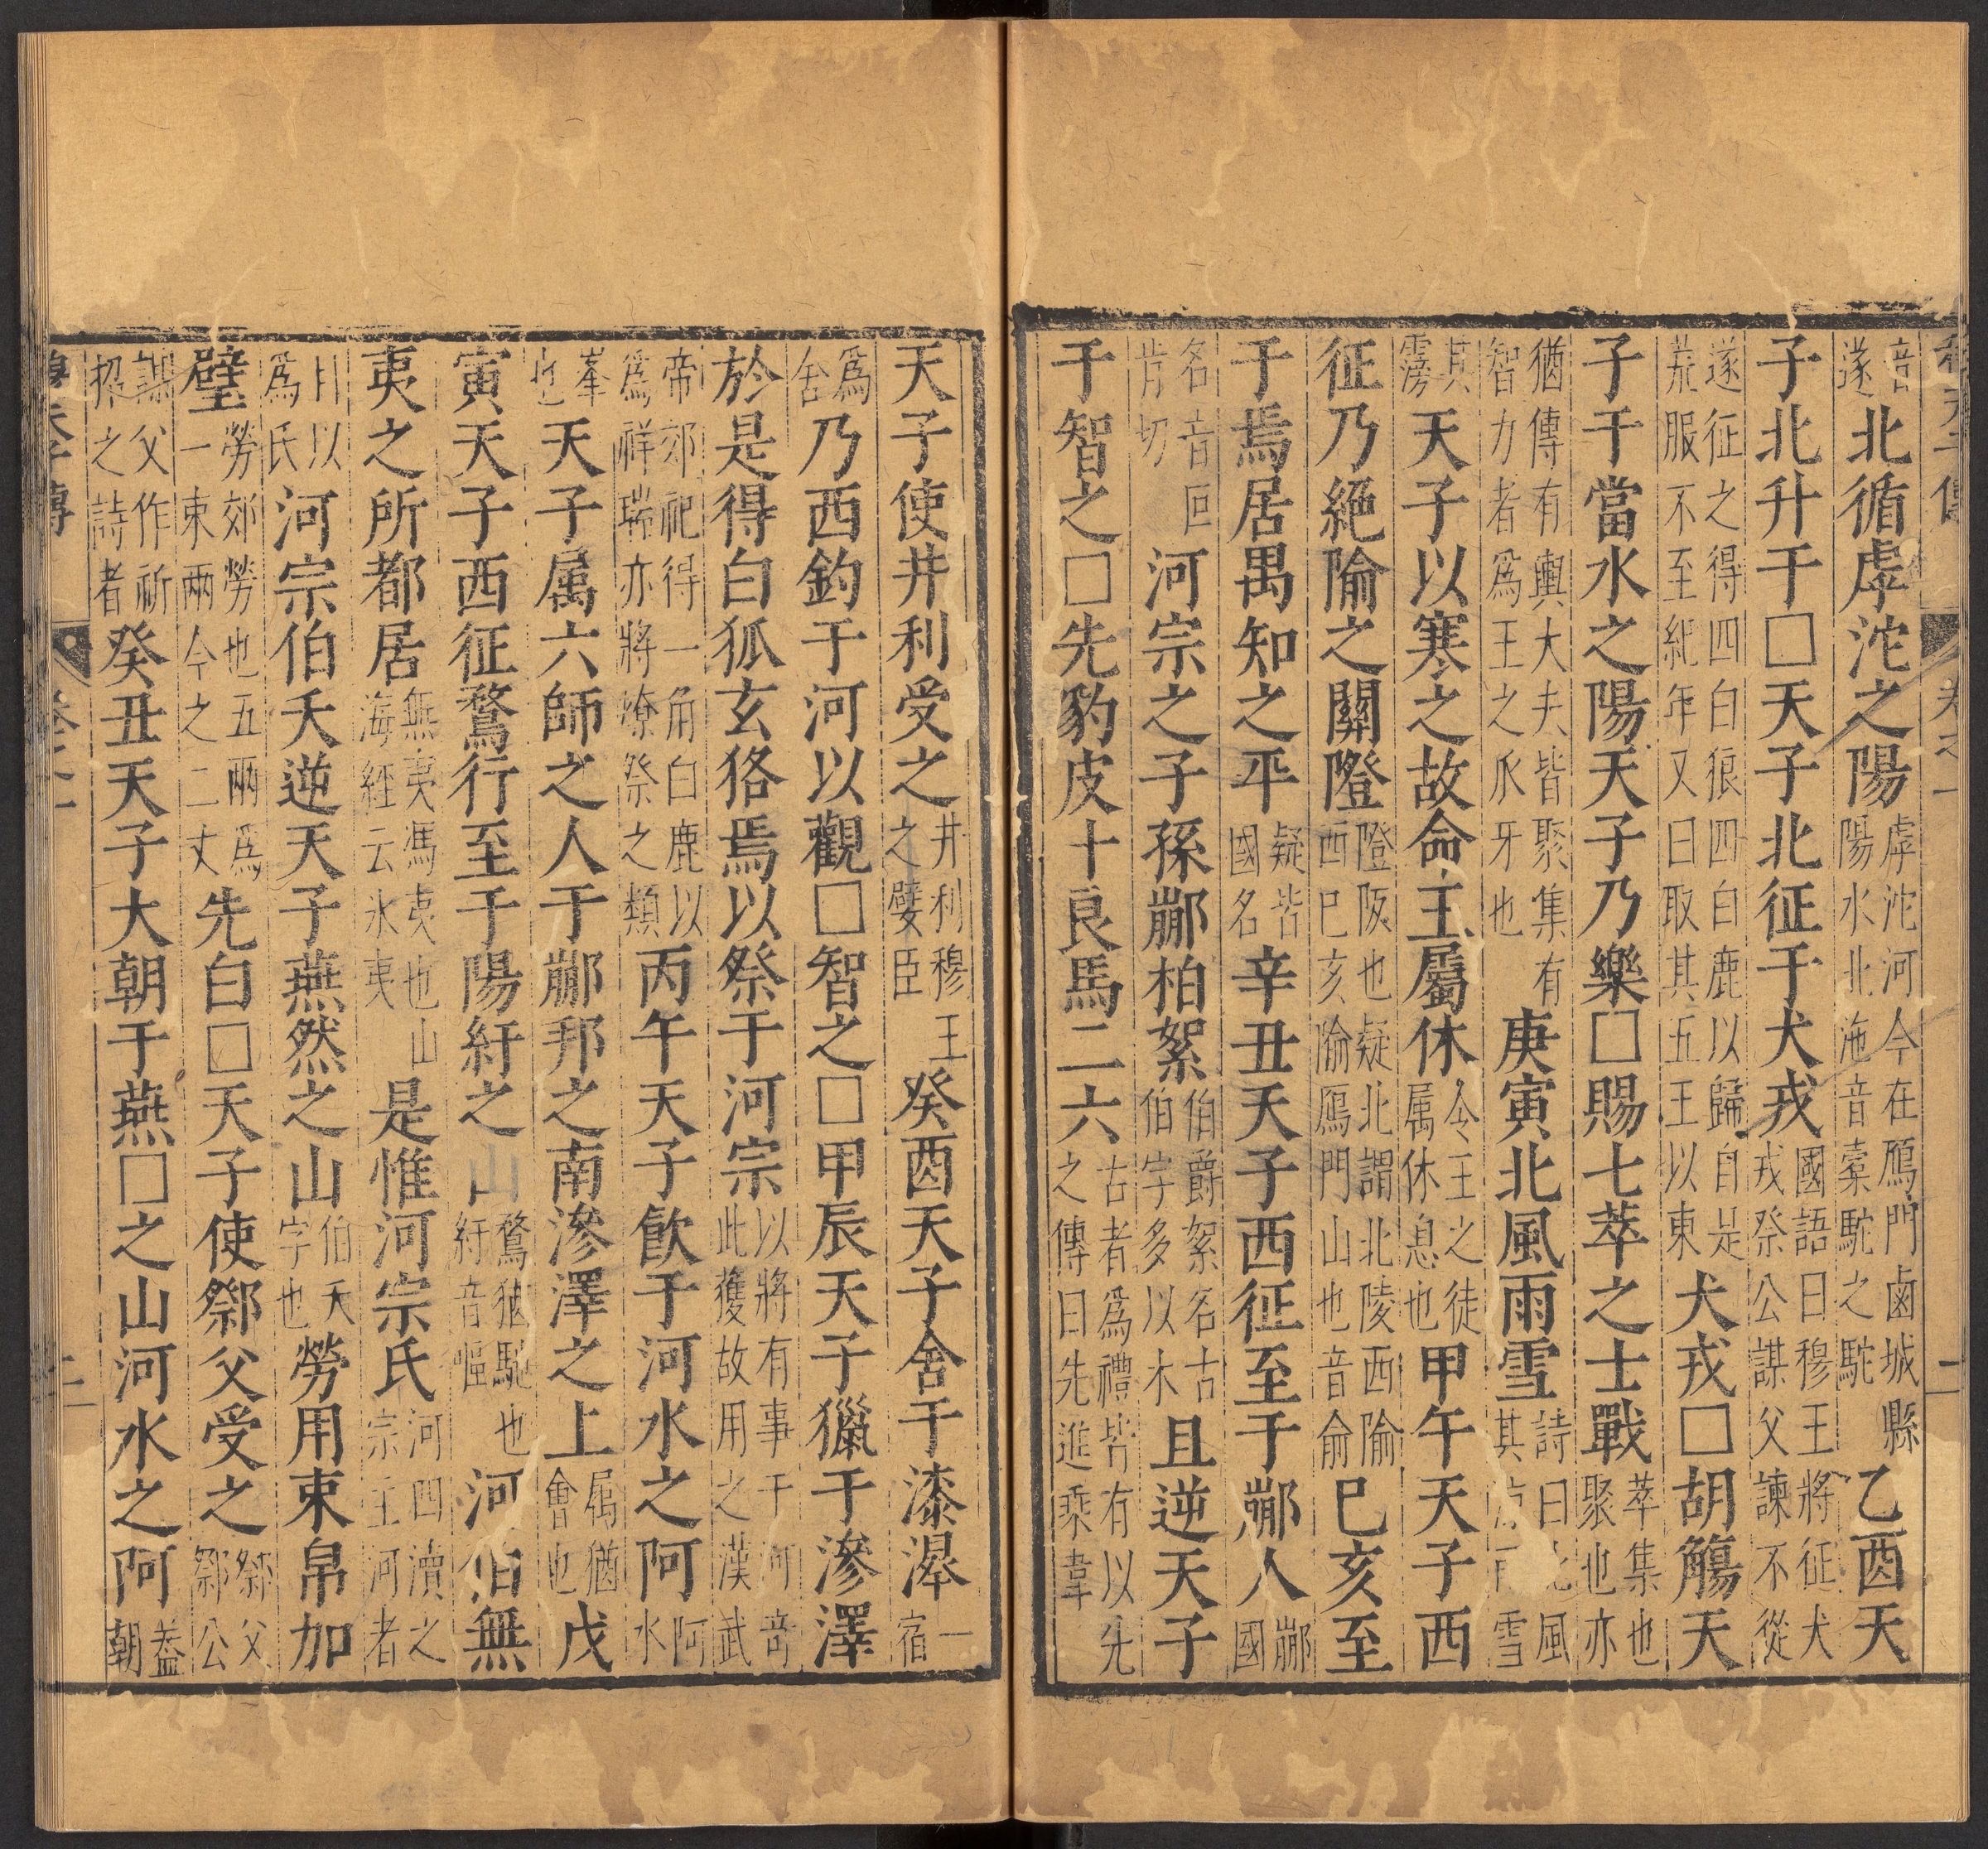 穆天子傳 卷之一 二
音遂北循虖沱之陽虖沱河今在鴈門鹵城縣陽水北沲音橐駝之駝乙酉天
子北升于□天子北征于犬戎國語曰穆王將征犬戎祭公謀父諫不從
遂征之得四白狼四白鹿以歸自是荒服不至紀年又曰取其五王以東犬戎□胡觴天
子于當水之陽天子乃樂□賜七萃之士戰萃集也聚也亦
猶傳有輿大夫皆聚集有智力者爲王之爪牙也庚寅北風雨雪詩曰北風其涼雨雪
其雱天子以寒之故命王屬休令王之徒属休息也甲午天子西
征乃絕隃之關隥隥阪也疑北謂北陵西隃西巳亥隃鴈門山也音俞巳亥至
于焉居禺知之平疑皆國名辛丑天子西征至于䣙人䣙國
名音叵肯切河宗之子孫䣙柏絮伯爵絮名古伯字多以木且逆天子
于智之□先豹皮十良馬二六古者爲禮皆有以先之傳曰先進乘韋
天子使井利受之井利穆王之嬖臣癸酉天子舍于漆㴫一宿
爲舍乃西釣于河以觀□智之□甲辰天子獵于滲澤
於是得白狐玄狢焉以祭于河宗以將有事于河奇此獲故用之漢武
帝郊祀得一角白鹿以爲祥瑞亦將燎祭之類丙午天子飲于河水之阿阿水
峯也天子属六師之人于䣙邦之南滲澤之上属猶會也戊
寅天子西征鶩行至于陽紆之山鶩猶馳也紆音嘔河伯無
夷之所都居無夷馮夷也山海經云氷夷是惟河宗氏河四瀆之宗主河者
因以爲氏河宗伯夭逆天子燕然之山伯夭字也勞用束帛加
璧勞郊勞也五兩爲一束兩今之二丈先白□天子使䣋父受之䣋父䣋公
謀父作祈招之詩者癸丑天子大朝于燕□之山河水之阿葢朝